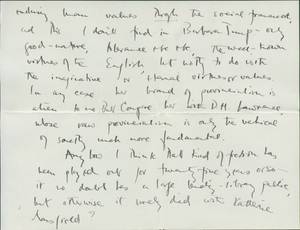 enduring human values through the social framework,
and this I don't find in Barbara Trump - only
good-nature, tolerance etc etc, the well-known
virtues of the English but nothing to do with
the imaginative or eternal virtues or values.
In any case her brand of provincialism is
alien to me. But compare her with D.H. Lawrence,
whose own provincialism is only the vehicle
of something much more fundamental.
Anyhow I think that kind of fiction has
been played out for twenty-five years or so -
it no doubt has a large lending-library public,
but otherwise it surely died with Katherine
Mansfield